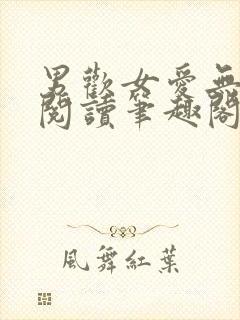 男歡女愛無
閱讀筆趣閣
風舞紅葉